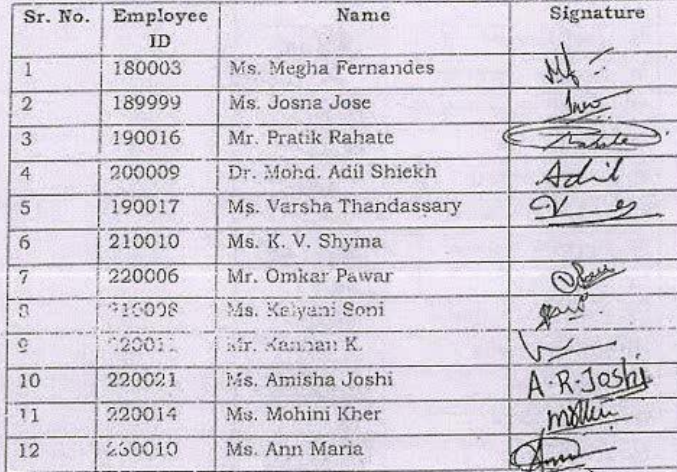 Sr. No. Employee ID Name Signature
1 180003 Ms. Megha Fernandes
2 189999 Ms. Josna Jose
3 190016 Mr. Pratik Rahate Rahate
4 200009 Dr. Mohd. Adil Shiekh Adil
5 190017 Ms. Varsha Thandassary
6 210010 Ms. K. V. Shyma
7 220006 Mr. Omkar Pawar
Ms. Kalyani Soni
9 Mr. Kannan K.
10 220021 Ms. Amisha Joshi A.R.Joshi
11 220014 Ms. Mohini Kher
12 230010 Ms. Ann Maria